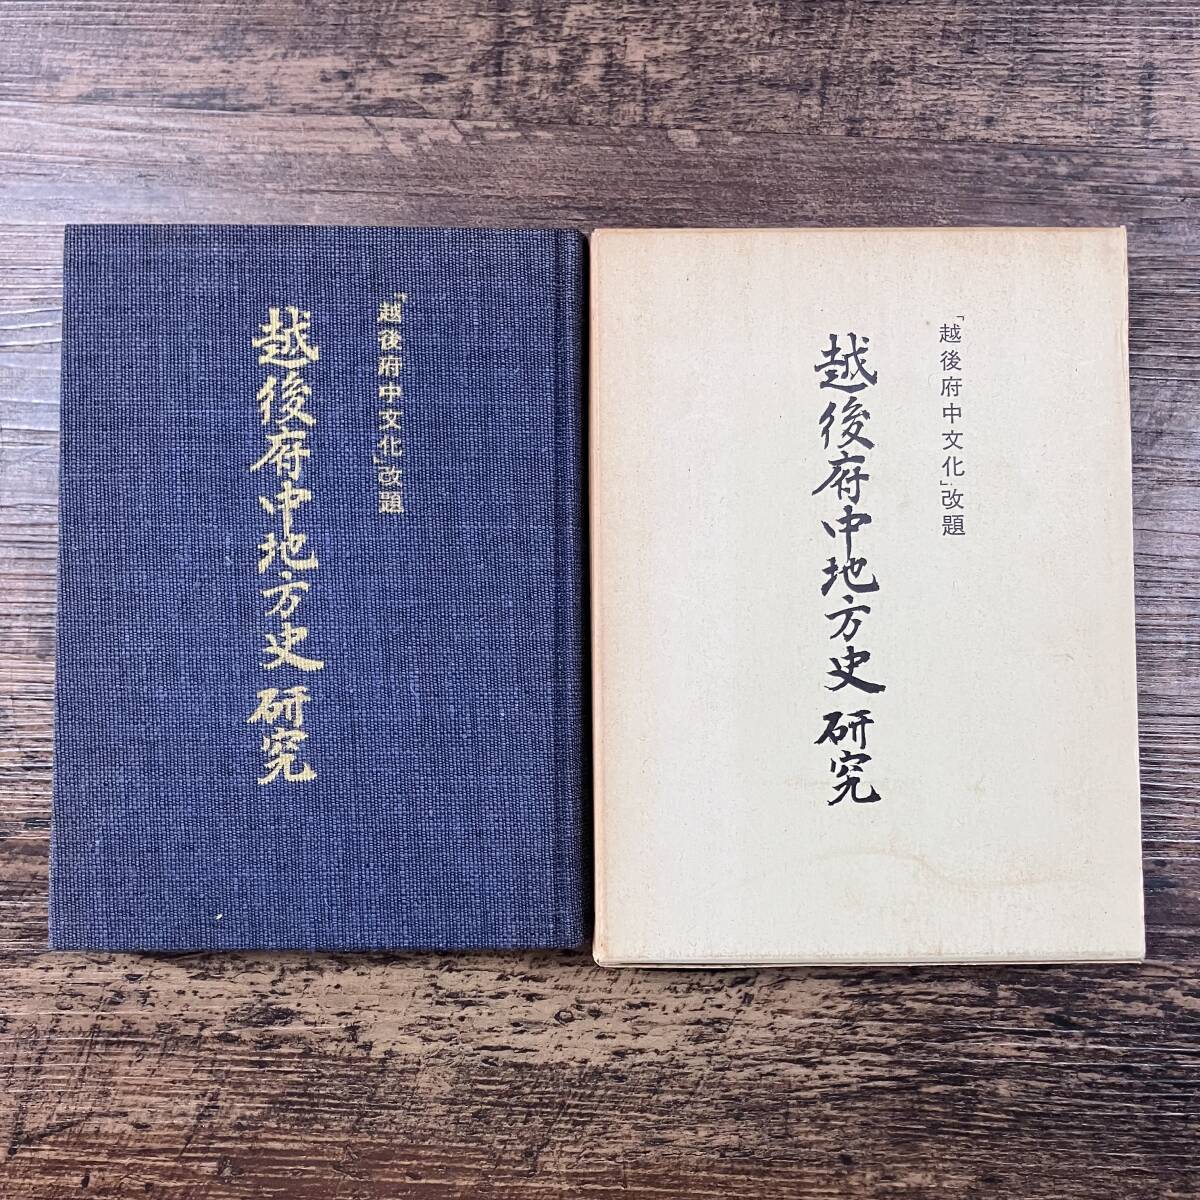 「越後府中文化」改題
越後府中地方史研究
「越後府中文化」改題
越後府中地方史研究